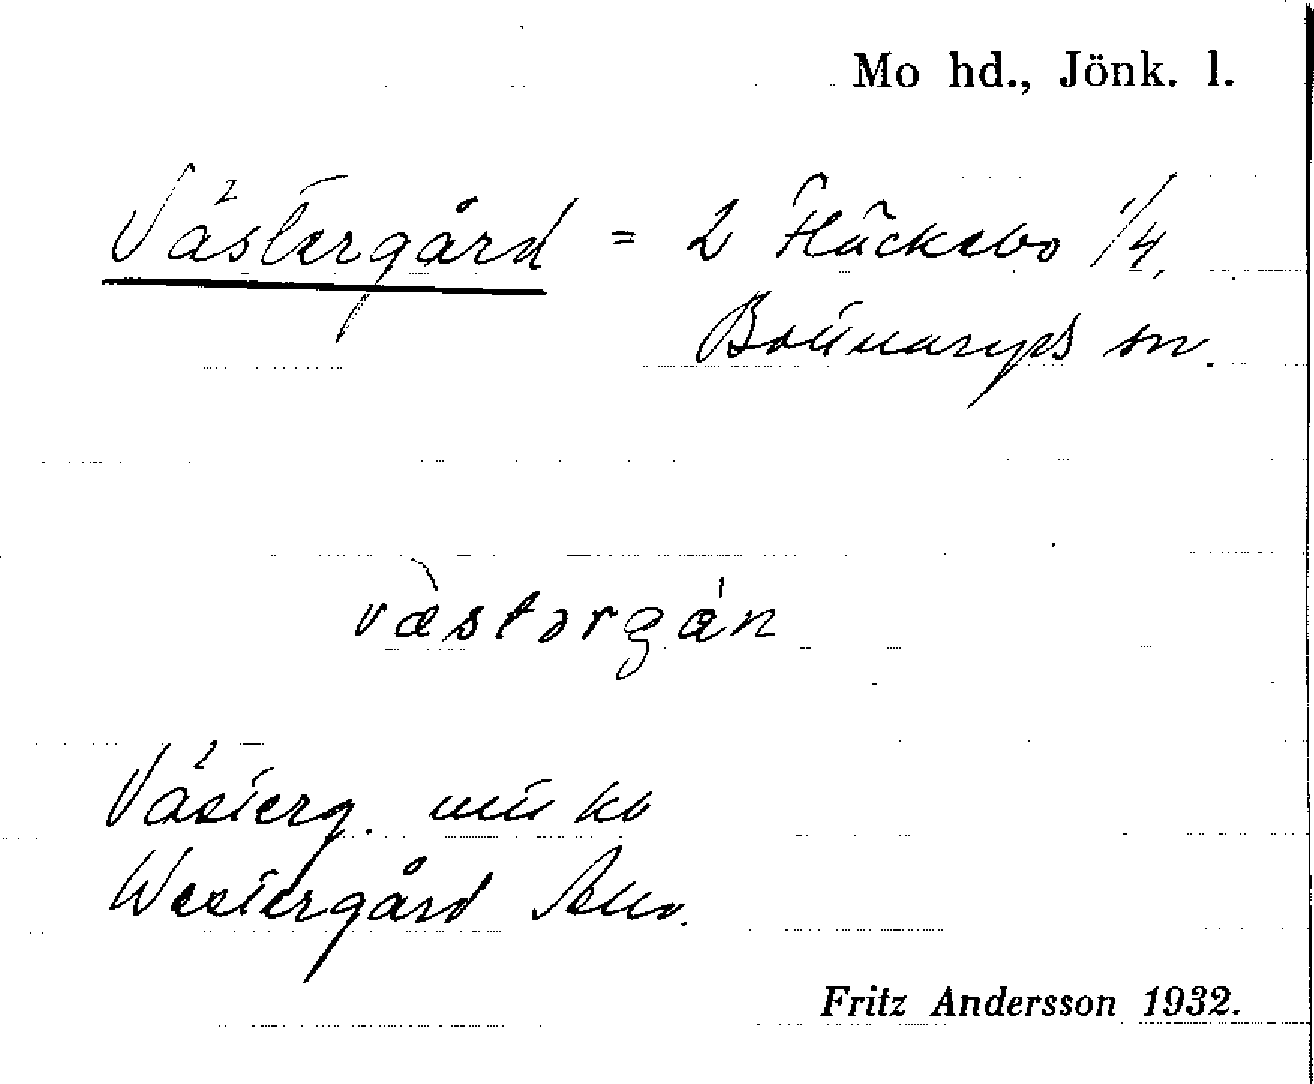 Mo hd., Jönk. l.
Västergård = 2 Häckebo 1/4,
Bottnaryds sn.
västərgán
Västerg.
Westergård
Fritz Andersson 1932.